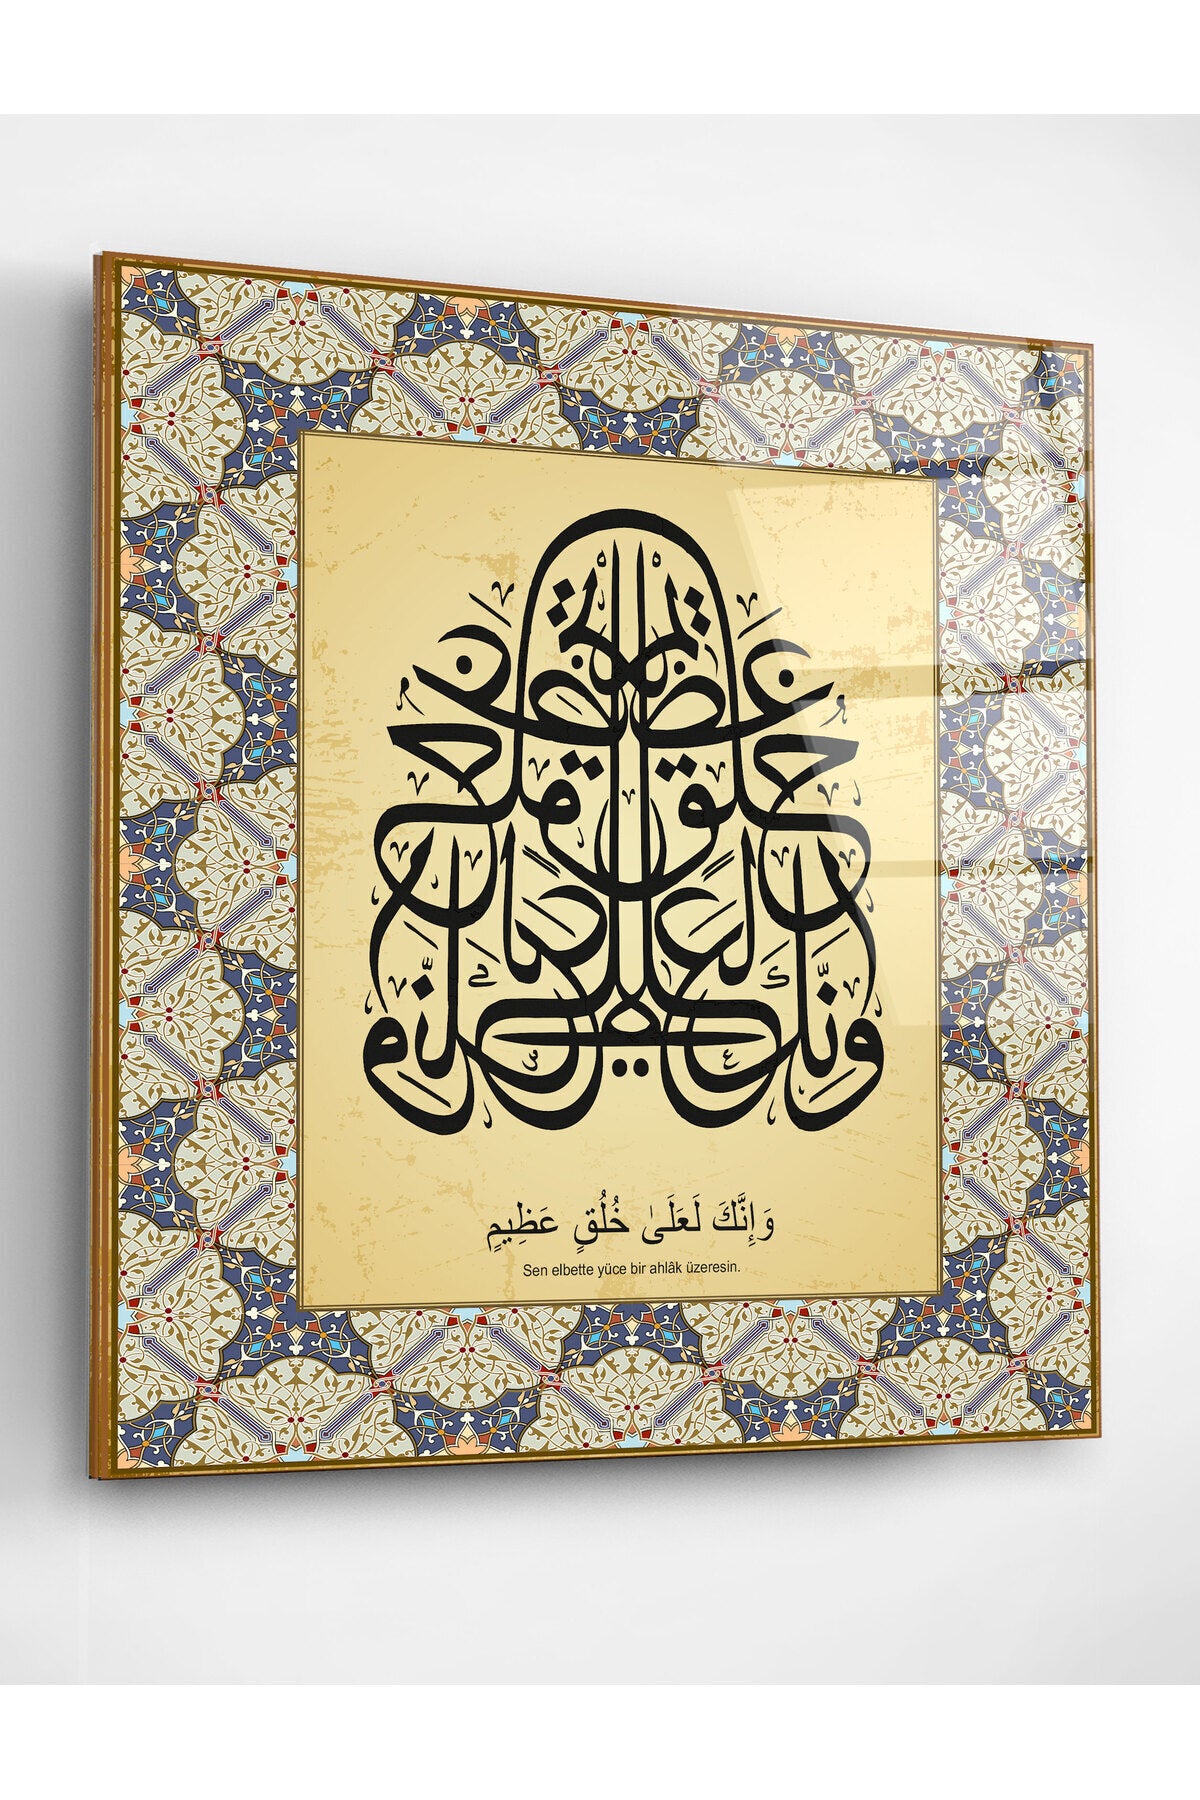 وانك لعلى خلق عظيم
وَإِنَّكَ لَعَلَىٰ خُلُقٍ عَظِيمٍ
Sen elbette yüce bir ahlâk üzeresin.